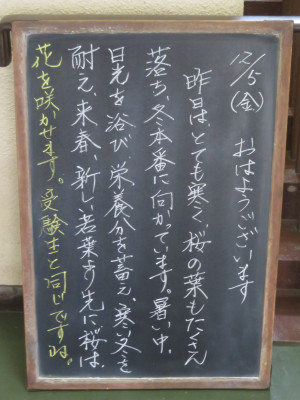 12/5(金) おはようございます
昨日は、とても寒く、桜の葉もたくさん
落ち、冬本番に向かっています。暑い中、
日光を浴び、栄養分を蓄え、寒い冬を
耐え、来春、新しい若葉より先に桜は、
花を咲かせます。受験生と同じですね。